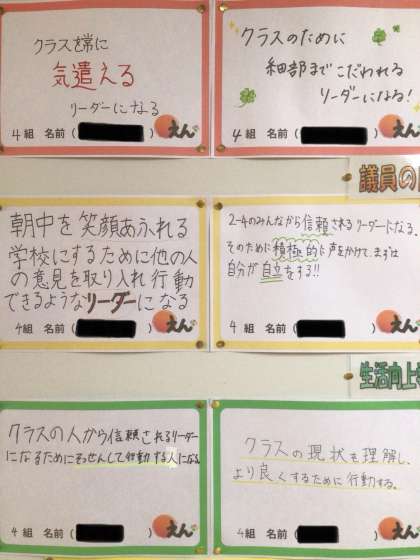 クラスを常に
気遣える
リーダーになる
4組 名前( ) えん
クラスのために
細部までこだわれる
リーダーになる!
4組 名前( ) えん
議員の
朝中を笑顔あふれる
学校にするために他の人
の意見を取り入れ行動
できるようなリーダーになる
4組 名前( ) えん
2-4のみんなから信頼されるリーダーになる。
そのために積極的に声をかけて、まずは
自分が自立をする!!
4組 名前( ) えん
生活向上
クラスの人から信頼されるリーダー
になるためにそっせんして行動する人になる
4組 名前( ) えん
クラスの現状を理解し、
より良くするために行動する。
4組 名前( ) えん